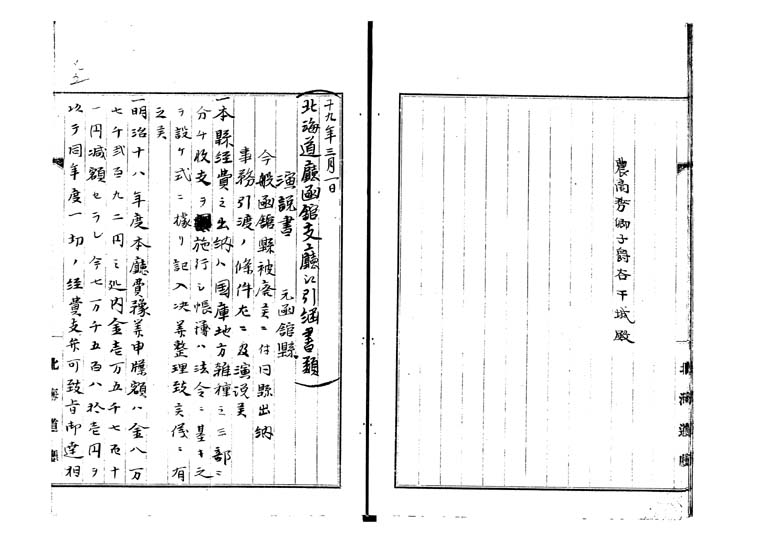 農商務卿子爵谷干城殿
十九年三月一日
(北海道廳函舘支廳江引繼書類)
演説書 元函舘縣
今般函舘縣被廃候ニ付旧縣出納
事務引渡ノ條件左ニ及演説候
一本縣経費之出納ハ国庫地方雑種之三部ニ
分チ収支ヲ施行シ帳簿ハ法令ニ基キ之
ヲ設ケ式ニ據リ記入决算整理致候儀ニ有
之候
一明治十八年度本廳費豫算申牒額ハ金八万
七千弐百九二円之処内金壱万五千七百十
一円減額セラレ今七万千五百八拾壱円ヲ
以テ同年度一切ノ経費支弁可致旨御達相
北海道廳
北海道廳